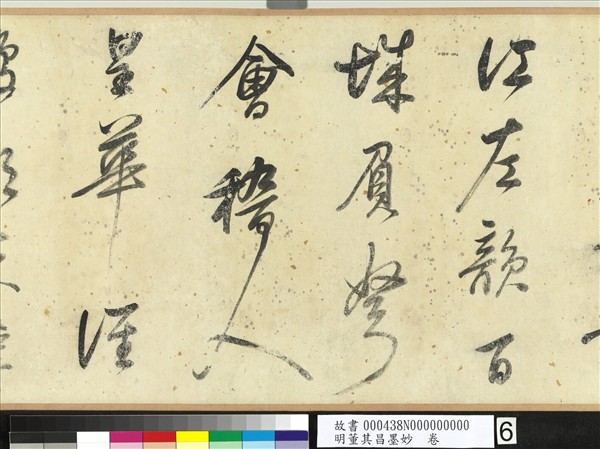 江左韻百
城負弩
會稽人
皇華誰
故書 000438N000000000
明董其昌墨妙 卷
6